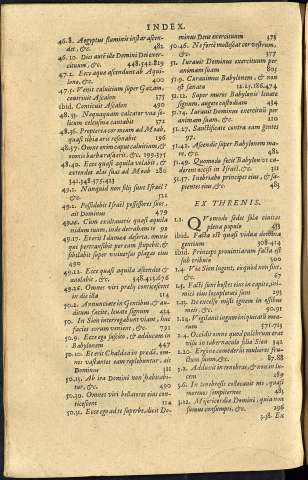 INDEX.
46.8. Ægyptus fluminis instar ascendet, &c. 482
46.10. Dies autē ille Domini Dei exercituum, &c. 448.342.819
47.2. Ecce aquæ ascendunt ab Aquilone, &c. 400
47.5. Venit caluitium super Gazam, conticuit Ascalon 275
ibid. Conticuit Ascalon 490
48.33. Nequaquam calcator vuæ solitum celeusma cantabit
48.36. Propterea cor meum ad Moab, quasi tibia æris resonabit 296
48.37. Omne enim caput caluitium, & omnis barba rasa &c. 199.375
48.40. Ecce quasi aquila volabit, & extendet alas suas ad Moab 280
49.1. Nunquid non filij sunt Israel? &c. 321
49.2. Possidebit Israel possessores suos, ait Dominus 479
49.17. Eritq́; Idumæa deserta. omnis qui pertransibit per eam stupebit, & sibilabit super vniuersas plagas eius 490
49.22. Ecce quasi aquila ascendet & auolabit, &c.
49.26. Omnes viri prælij conticescent in die illa 114
50.2. Annunciate in Gentibus, & auditum facite, leuate signum 434
50.5. In Sion interrogabunt viam, huc facies eorum venient, &c. 791
50.9. Ecce ego suscito, & adducam in Babylonem 447
50.10. Et erit Chaldæa in prædā. omnes vastantes eam replebuntur, ait Dominus 311
50.13. Ab ira Domini non habitabitur, &c. 490
50.30. Omnes viri bellatores eius conticescent 114
50.31. Ecce ego ad te superbe, dicit Dominus Deus exercituum 375
50.46. No formidabunt cor vestrum, &c. 377
51. Iurauit Dominus exercituum per animam suam 805
51.9. Curauimus Babylonem, & non est sanata 12.25.186.474
51.12. Super muros Babylonis leuate signum, augete custodiam 434
51.14. Iurauit Dominus exercituum per animam suam, &c. 110
51.27. Sanctificate contra eam gentes
51.42. Ascendit super Babylonem mare, &c. 482
51.49. Quomodo fecit Babylon vt caderent occisi in Israel, &c. 311
51.57. Inebriabo principes eius, & sapientes eius &c. 483
EX THRENIS.
1.1. Quomodo sedet sola ciuitas plena populo 453
ibid. Facta est quasi vidua domina gentium 308.414
ibid. Princeps prouinciarum facta est sub tributo 300
1.4. Viæ Sion lugent, eo quòd non sint, &c. 67
1.5. Facti sunt hostes eius in capite, inimici eius locupletati sunt 5
1.13. De excelso misit ignem in ossibus meis, &c. 90.91
2.4. Occidit omne quod pulchrum erat visu in tabernaculo filiæ Sion 342
2.20. Ergóne comedent mulieres fructum suum, &c. 87.88
3.2. Adduxit in tenebras, & non in lucem 289
3.6. In tenebrosis collocauit me, quasi mortuos sempiternos 485
3.22. Misericordiæ Domini, quia non sumus consumpti, &c. 296
3.38. Ex